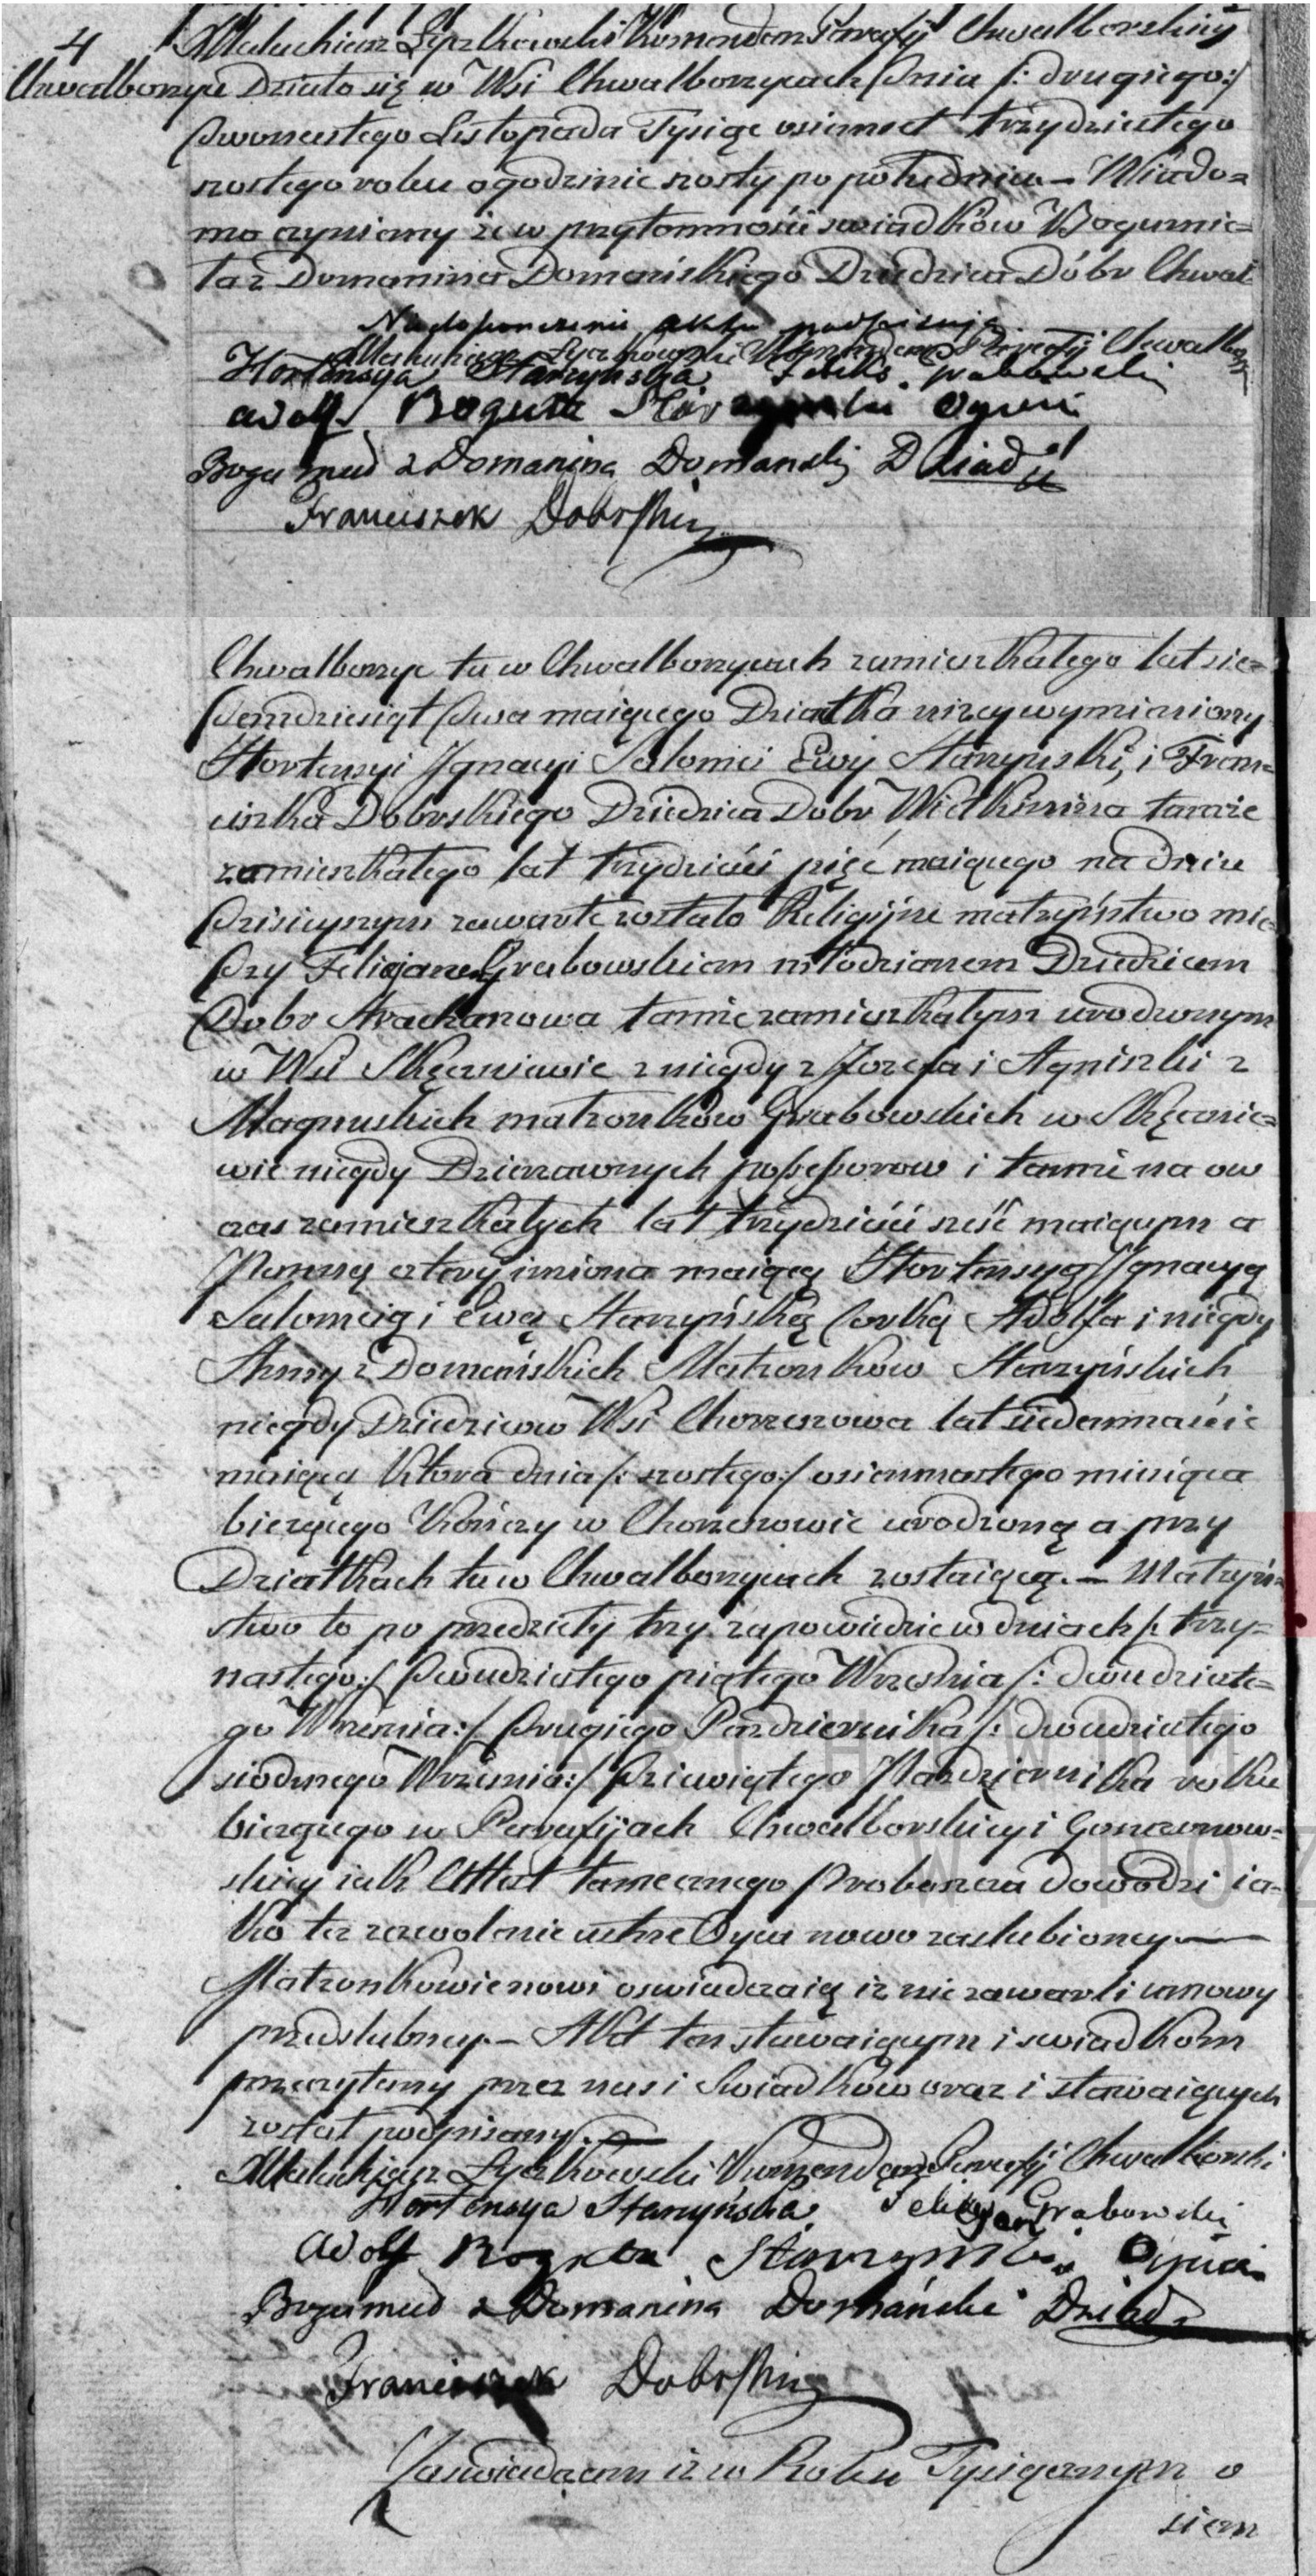 4 Malachiasz Łyczkowski Komendarz Parafij Chwalborskiey
Chwalborzyce Działo się w Wsi Chwalborzycach dnia /: drugiego:/
dwonastego Listopada Tysiąc osiemset trzydziestego
szostego roku ogodzinie szosty po południu – Wiado=
mo czyniemy iż w przytomności swiadków Bogumie=
ła z Domanina Domańskiego Dziedzica Dóbr Chwal
Nadopenczenie aktu podpisuią
Malachiasz Łyczkowski Komendarz Parafij Chwalbor
Hortensya Starzynska Grabowski
Adolf Boguta Starzynski Oyciec
Bogumiud z Domanina Domanskij Dziad
Franciszek Dobrski
Chwalborzyc tu w Chwalborzycach zamieszkałego lat sie=
demdziesiąt dwa maiącego Dziadka niżey wymieniony
Hortensyi Ignacyi Salomei Ewy Starzynski, i Fran=
ciszka Dobrskiego Dziedzica Dobr Wielkinina tamże
zamieszkałego lat trzydzieści pięć maiącego na dniu
dzisieyszym zawarte zostało Religijne małżeństwo mie=
dzy Felicjanem Grabowskiem młodzianem Dziedzicem
Dobr Strachanowa tamże zamieszkałym urodzonym
w Wsi Skęczniewie z niegdy z Jozefa i Agniszki z
Magnuskich małżonków Grabowskich w Skęcznie=
wie niegdy Dzierzawnych possessorow i tamże na ow
czas zamieszkałych lat trzydzieści sześć maiącym a
Panną cztery imiona maiącą Hortensyą Ignacyą
Salomeią i Ewą Starzyńską Corką Adolfa i niegdy
Anny z Domańskich Małżonkow Starzyńskich
niegdy Dziedzicow Wsi Chorzeszowa lat siedemnaście
maiącą ktora dnia /: szostego:/ osiemnastego miesiąca
bieżącego kończy w Chorzeszowie urodzoną a przy
Dziadkach tu w Chwalborzycach zostaiącą. – Małżeń=
stwo to po przedziły trzy zapowiedzie w dniach /: trzy=
nastego:/ dwudziestego piątego Września /: dwudzieste=
go Wrzesnia:/ drugiego Pazdziernika /: dwudziestego
siodmego Wrzesnia:/ dziewiątego Pazdziernika roku
bieżącego w Parafijach Chwalborskiey i Goszczonow=
skiey iak Attest tamecznego Proboszcza dowodzi ia=
ko też zezwolenie ustne Oyca nowo zaslubioney —
Małzonkowie nowi oswiadczaią iż nie zawarli umowy
przedslubney – Akt ten stawaiącym i swiadkom
przeczytany przez nas i Swiadków oraz i stawaiących
został podpisany. —
Malachiasz Łyczkowski Komendarz Parafij Chwalborski
Hortensya Starzyńska. Felicyan Grabowski
Adolf Boguta Starzynski. Oyciec
Bogumiud z Domanina Domański Dziad
Franciszek Dobrski
Zaswiadczam iż w Roku Tysiącznym o
siem